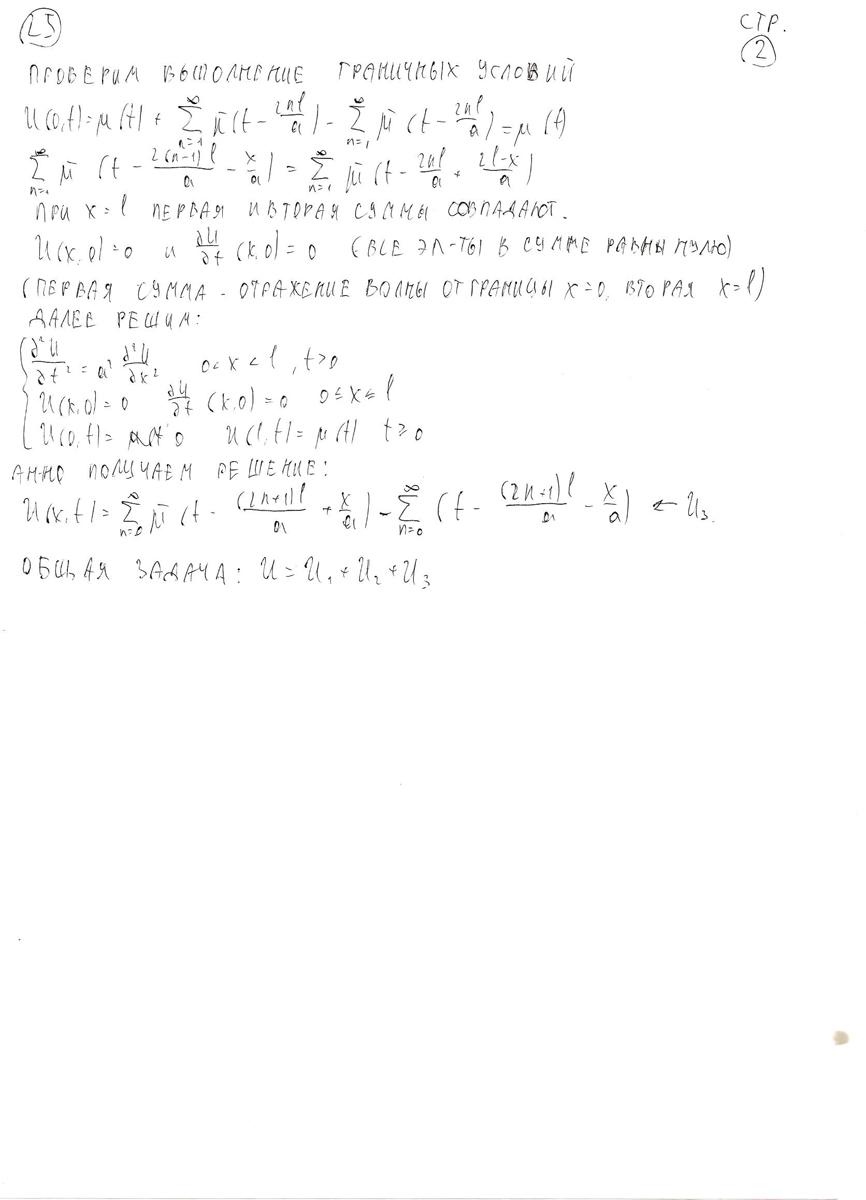 25
СТР.
2
ПРОВЕРИМ ВЫПОЛНЕНИЕ ГРАНИЧНЫХ УСЛОВИЙ
U(0,t)=μ(t)+∑_{n=1}^{∞} μ̄(t-2nl/a)-∑_{n=1}^{∞} μ̄(t-2nl/a)=μ(t)
∑_{n=1}^{∞} μ̄(t-2(n-1)l/a-x/a)=∑_{n=1}^{∞} μ̄(t-2nl/a+2l-x/a)
ПРИ x=l ПЕРВАЯ И ВТОРАЯ СУММЫ СОВПАДАЮТ.
U(x,0)=0 и ∂U/∂t(x,0)=0 (ВСЕ ЭЛ-ТЫ В СУММЕ РАВНЫ НУЛЮ)
(ПЕРВАЯ СУММА - ОТРАЖЕНИЕ ВОЛНЫ ОТ ГРАНИЦЫ x=0, ВТОРАЯ x=l)
ДАЛЕЕ РЕШИМ:
∂²U/∂t²=a²∂²U/∂x² 0<x<l, t>0
U(x,0)=0 ∂U/∂t(x,0)=0 0≤x≤l
U(0,t)=0 U(l,t)=μ(t) t≥0
АН-НО ПОЛУЧАЕМ РЕШЕНИЕ:
U(x,t)=∑_{n=0}^{∞} μ̄(t-(2n+1)l/a+x/a)-∑_{n=0}^{∞}(t-(2n+1)l/a-x/a) ← U₃.
ОБЩАЯ ЗАДАЧА: U=U₁+U₂+U₃